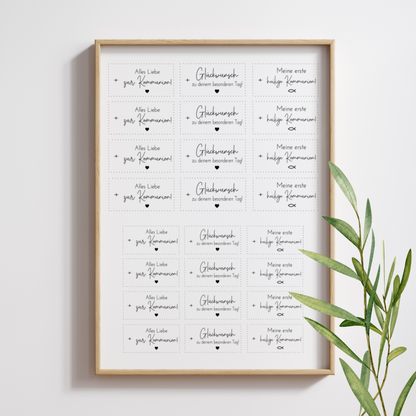 Alles Liebe
zur Kommunion!
Glückwunsch
zu deinem besonderen Tag!
Meine erste
heilige Kommunion!
Alles Liebe
zur Kommunion!
Glückwunsch
zu deinem besonderen Tag!
Meine erste
heilige Kommunion!
Alles Liebe
zur Kommunion!
Glückwunsch
zu deinem besonderen Tag!
Meine erste
heilige Kommunion!
Alles Liebe
zur Kommunion!
Glückwunsch
zu deinem besonderen Tag!
Meine erste
heilige Kommunion!
Alles Liebe
zur Kommunion!
Glückwunsch
zu deinem besonderen Tag!
Meine erste
heilige Kommunion!
Alles Liebe
zur Kommunion!
Glückwunsch
zu deinem besonderen Tag!
Meine erste
heilige Kommunion!
Alles Liebe
zur Kommunion!
Glückwunsch
zu deinem besonderen Tag!
Meine erste
heilige Kommunion!
Alles Liebe
zur Kommunion!
Glückwunsch
zu deinem besonderen Tag!
Meine erste
heilige Kommunion!